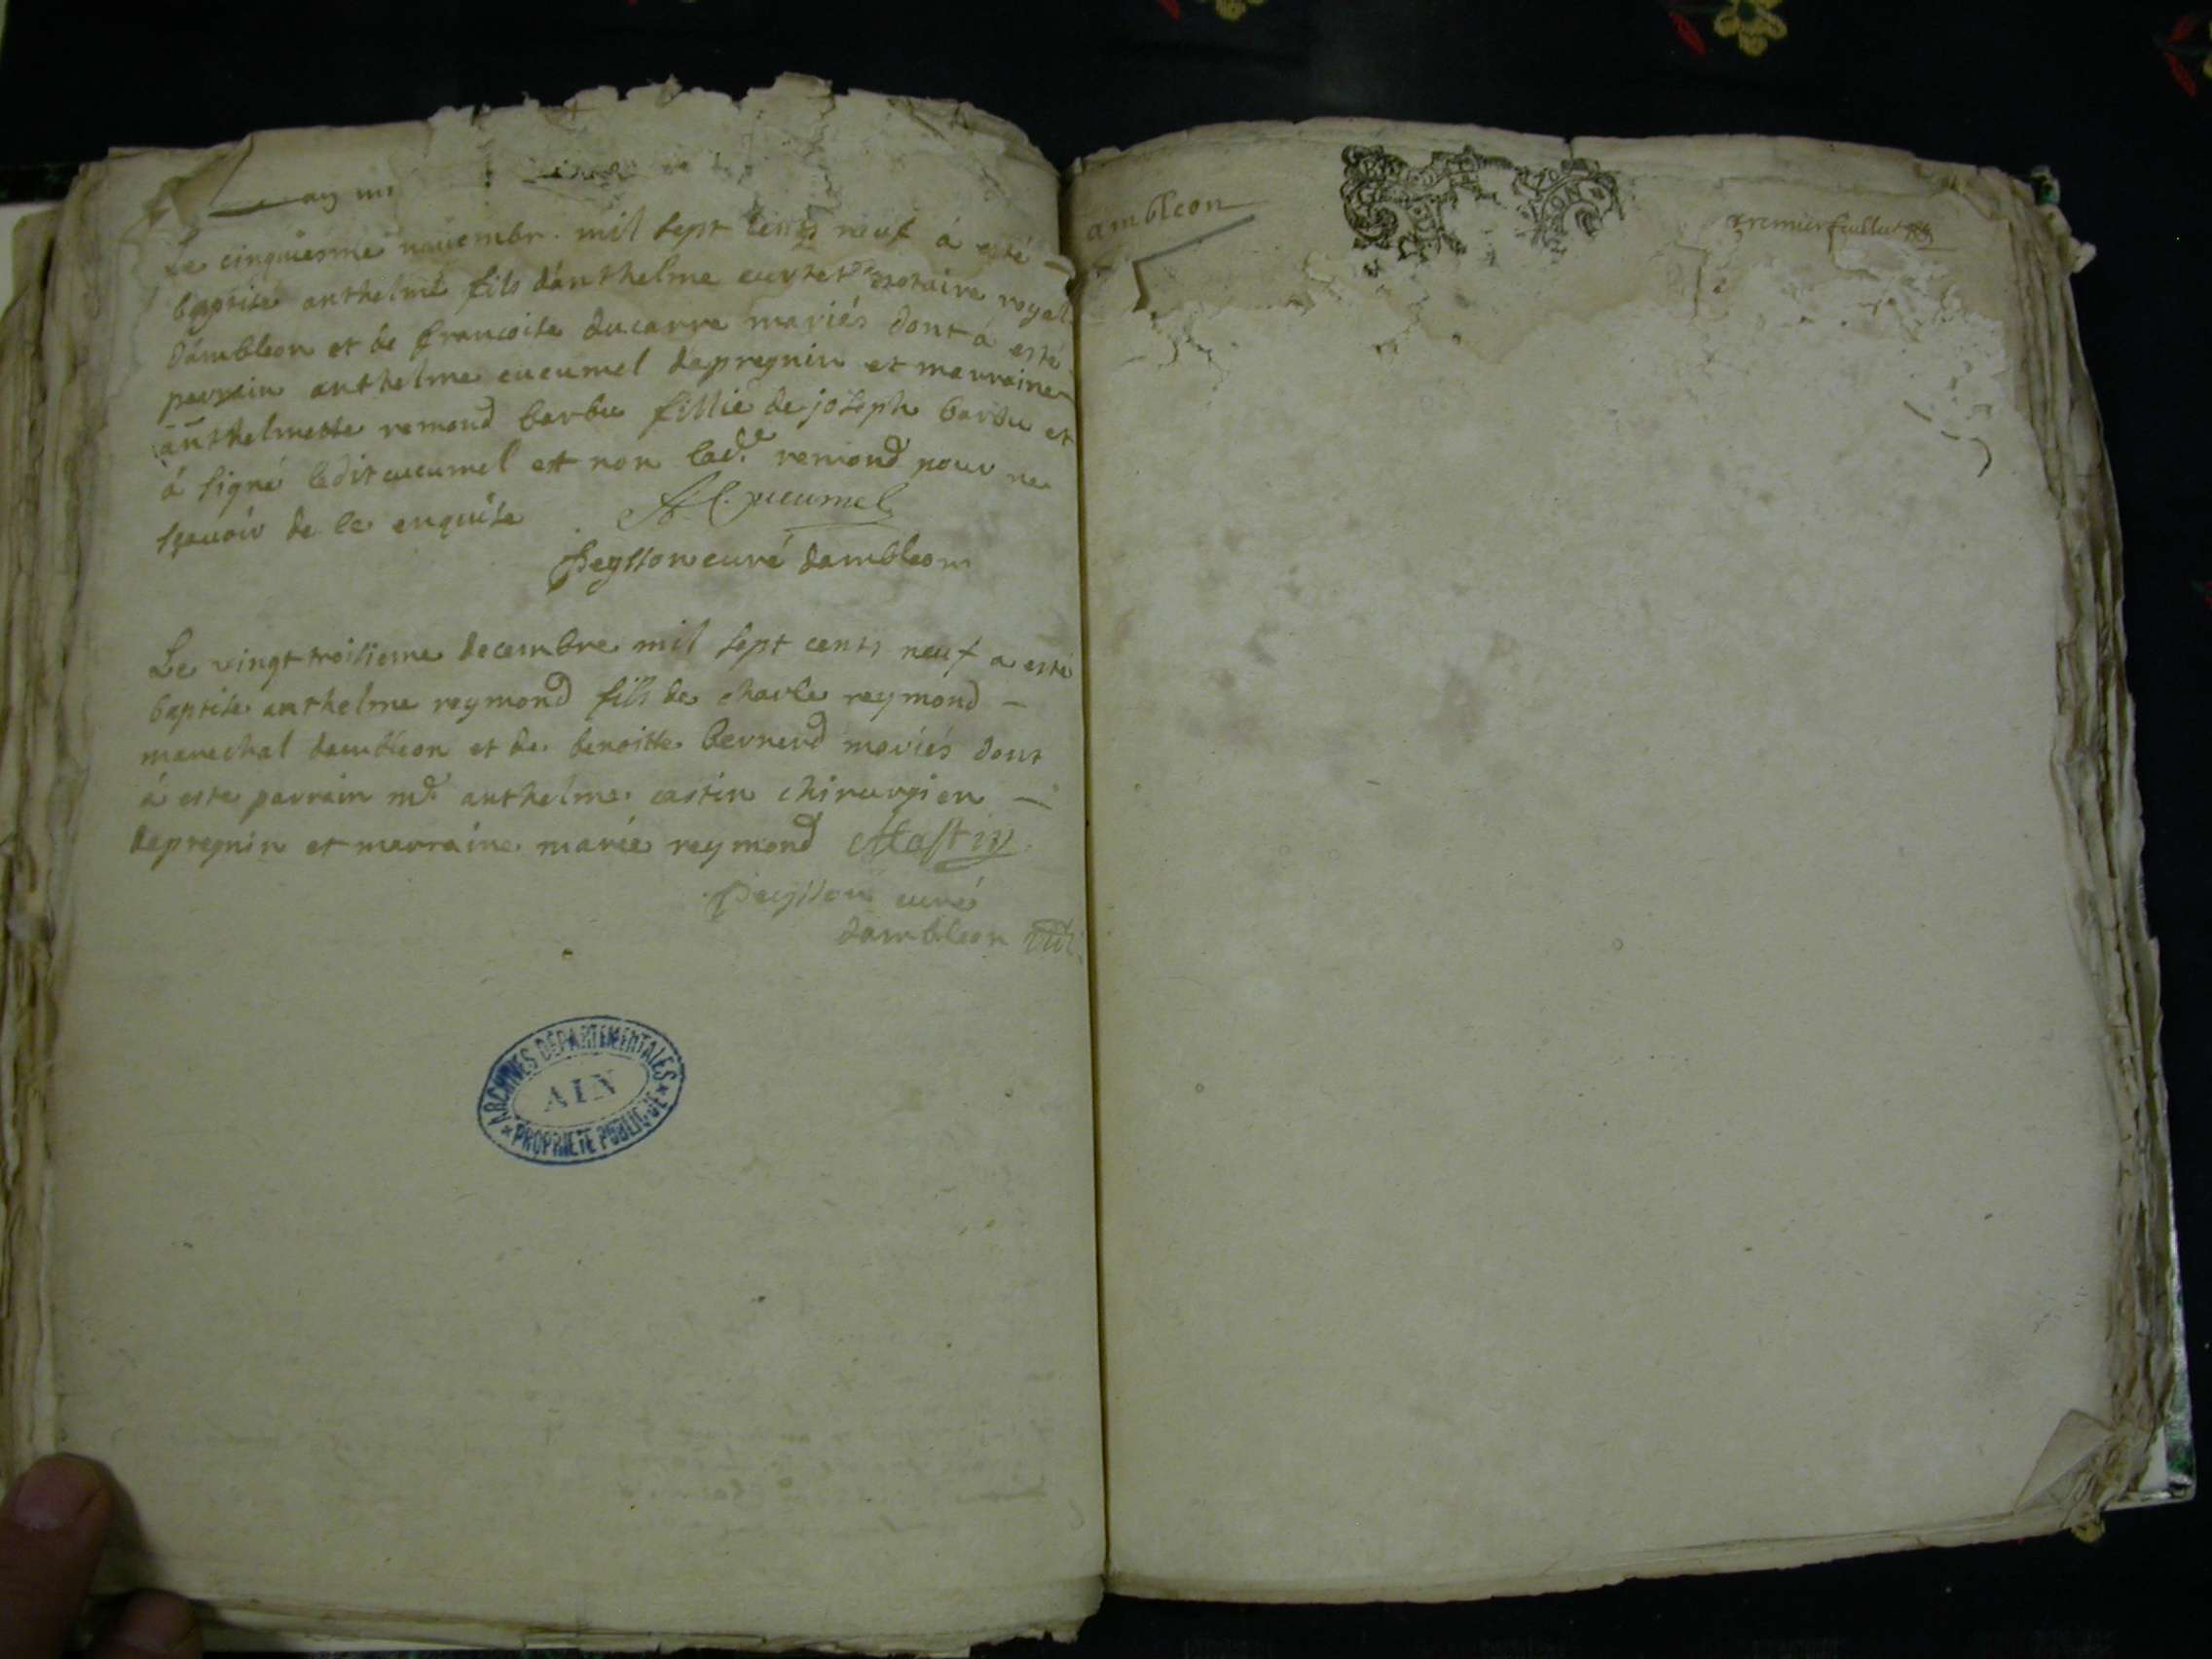 Le cinquiesme nouembr. mil sept cents neuf á esté
baptisé anthelme fils dánthelme curtet notaire royal
dámbleon et de francoise ducarre mariés dont á esté
parrain anthelme cucumel depregnin et marraine
anthelmette remond barbu fillie de joseph barbu et
á signé ledit cucumel et non lad.e remond pour ne
sçauoir de ce enquise
A. Cucumel
Peysson curé dambleon
Le vingt troisieme decembre mil sept cents neuf a esté
baptise anthelme reymond fils de charle reymond
marechal dambleon et de benoitte bernerd mariés dont
á este parrain md. anthelme castin chirurgien
depregnin et marraine marie reymond ACastin
Peysson curé
dambleon
ARCHIVES DÉPARTEMENTALES
AIN
PROPRIÉTÉ PUBLIQUE
ambleon
premier feuillet